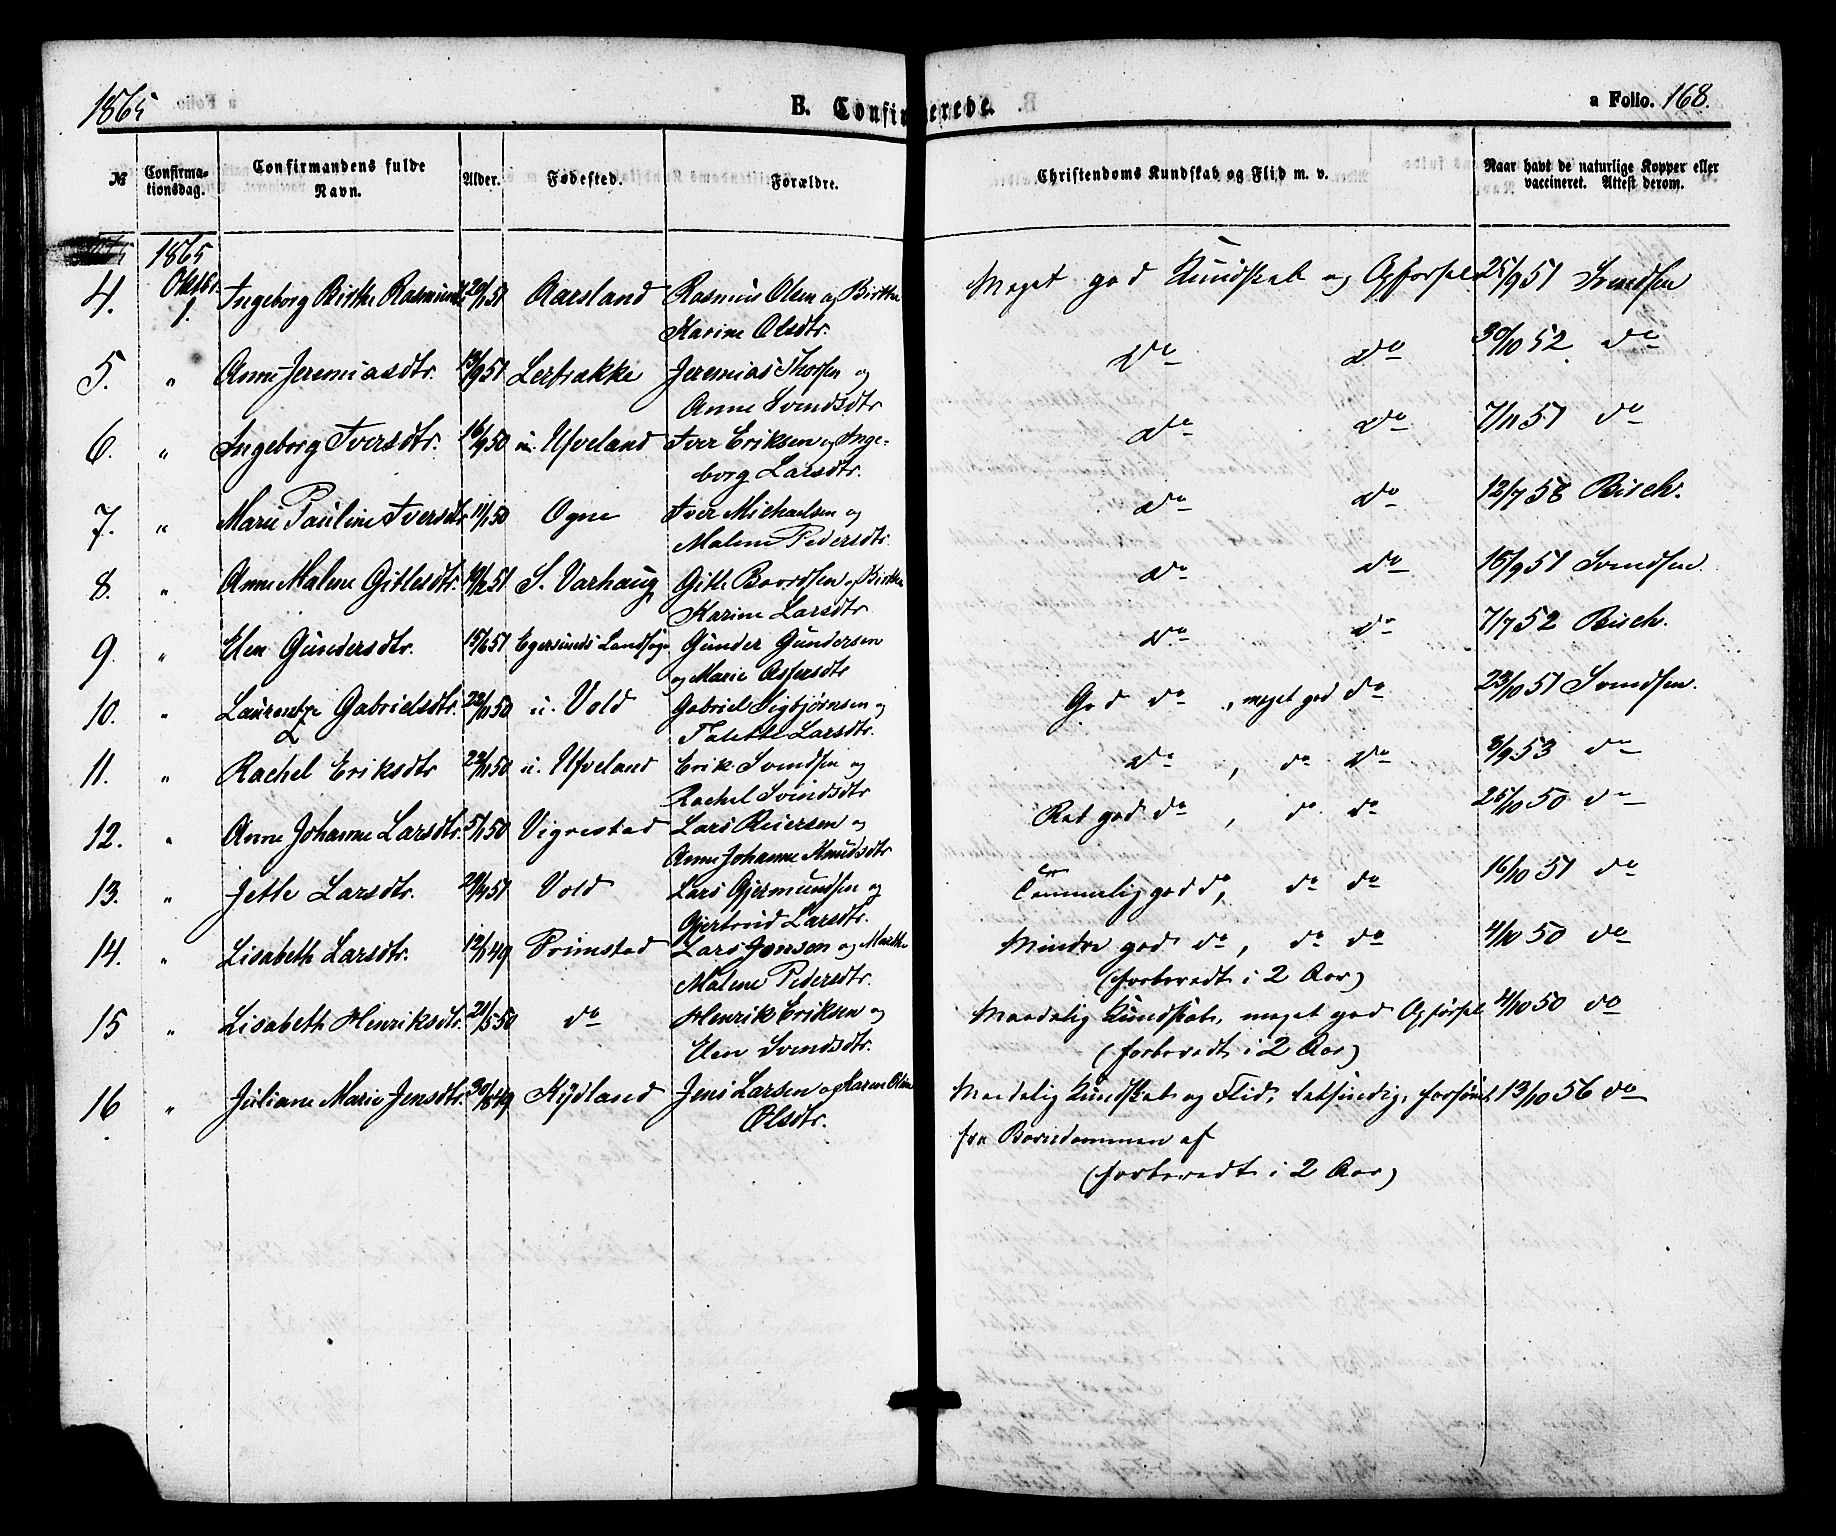 1865
B. Confirmerede.
a Folio. 168.
№
Confirma-
tionsdag.
Confirmandens fulde
Navn.
Alder.
Fødested.
Forældre.
Christendoms Kundskab og Flid m. v.
Naar havt de naturlige Kopper eller
vaccineret. Attest derom.
1865
4. Oktbr. 1. Ingeborg Birthe Rasmusd 20/1 51 Aarsland Rasmus Olsen og Birthe Meget god Kundskab og Opførsel 25/9 51 Svendsen
Karine Olsdtr.
5. " Anne Jeremiasdtr. 13/9 51 Lerbrække Jeremias Thorsen og do do 30/10 52 do
Anne Svendsdtr
6. " Ingeborg Iversdtr. 16/9 50 u. Ufveland Iver Eriksen og Inge- do do 7/11 51 do
borg Larsdtr.
7. " Marie Pauline Iversdtr 11/1 50 Ogne Iver Michaelsen og do do 12/7 58 Bisch.
Malene Pedersdtr.
8. " Anne Malene Gitlesdtr. 10/2 51 S. Varhaug Gitle Baardsen og Birthe do do 15/9 51 Svendsen
Karine Larsdtr
9. " Elen Gundersdtr. 15/6 51 Egersunds Landsogn Gunder Gundersen do do 7/7 52 Bisch.
og Marie Assersdtr
10. " Laurentze Gabrielsdtr. 22/11 50 u. Vold Gabriel Sigbjørnsen og God do, meget god do 23/10 51 Svendsen.
Tolette Larsdtr.
11. " Rachel Eriksdtr 23/11 50 u. Ufveland Erik Svendsen og do, do do 8/9 53 do
Rachel Svendsdtr
12. " Anne Johanne Larsdtr. 5/1 50 Vigrestad Lars Reiersen og Ret god do, do do 25/10 50 do
Anne Johanne Knudsdtr
13. " Jette Larsdtr. 29/4 51 Vold Lars Gjermundsen og Temmelig god do, do do 16/10 51 do
Gjertrud Larsdtr.
14. " Lisabeth Larsdtr. 12/1 49 Primstad Lars Jonsen og Marthe Mindre god do, do do 4/10 50 do
Malene Pedersdtr. (forberedt i 2 Aar)
15 " Lisabeth Henriksdtr. 21/5 50 do Henrik Eriksen og Maadelig Kundskab, meget god Opførsel 4/10 50 do
Elen Svendsdtr. (forberedt i 2 Aar)
16 " Juliane Marie Jensdtr. 30/8 49 Kydland Jens Larsen og Karen Oline Maadelig Kundskab og Flid, letsindig, forsømt 13/10 56 do
Olsdtr. fra Barndommen af
(forberedt i 2 Aar)